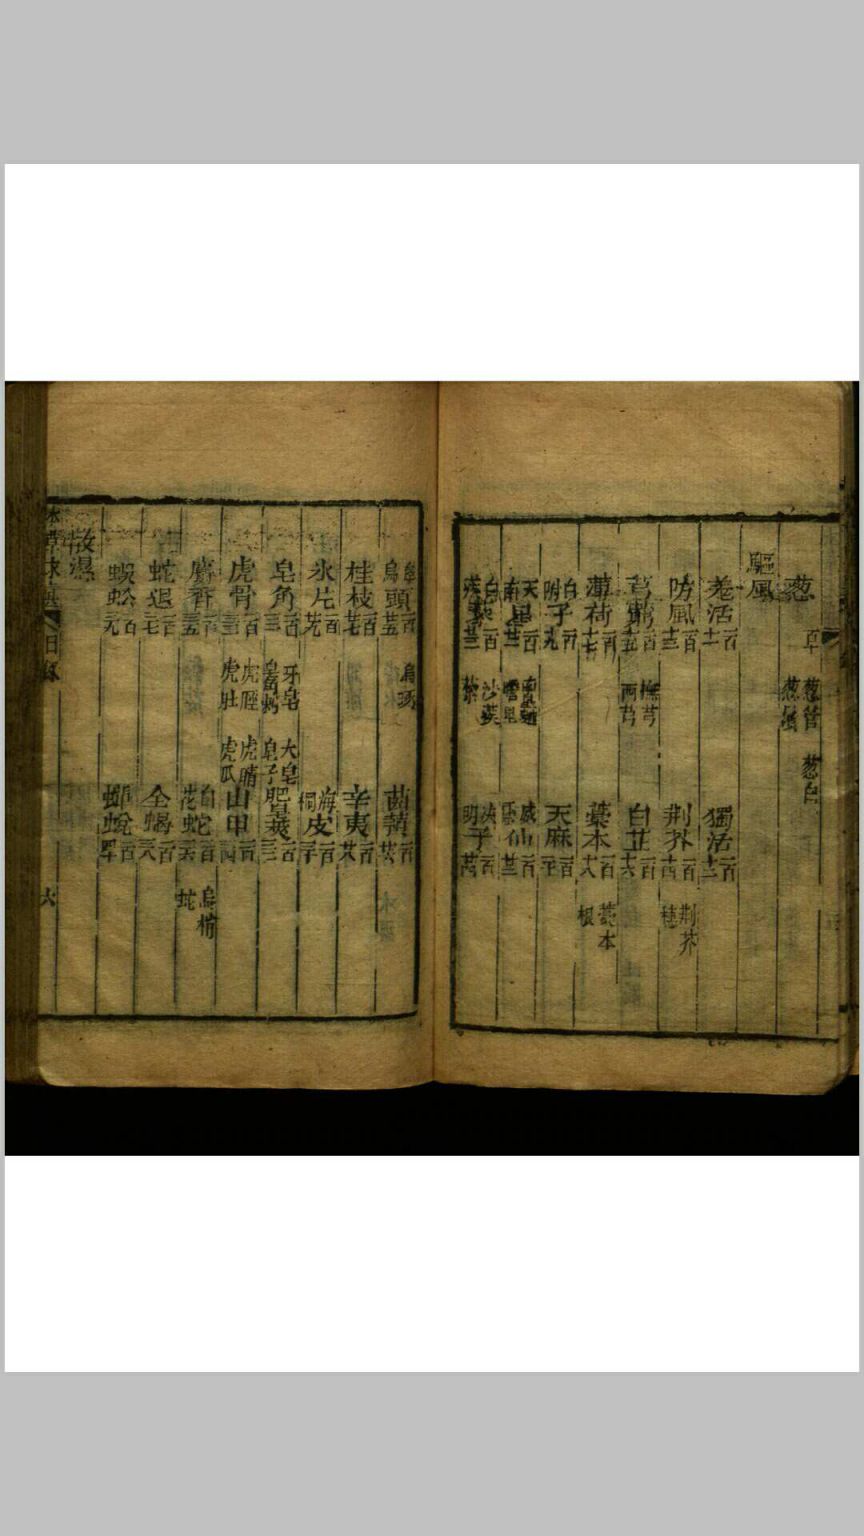 葱 百 葱管 葱鬚 葱白
驅風
羌活 百十一 獨活 百十二
防風 百十三 荆芥 百十四 荆芥穗
芎藭 百十五 撫芎 西芎 白芷 百十六
薄荷 百十七 藁本 百十八 藁本根
白附子 百十九 天麻 百二十
天南星 百廿一 南星麯 膽星 威靈仙 百廿二
白蒺藜 百廿三 沙蒺藜 决明子 百廿四
草烏頭 百廿五 茵蔯 百廿六
桂枝 百廿七 辛夷 百廿八
氷片 百廿九 海桐皮 百三十
皂角 百三一 牙皂 大皂 皂子 肥皂莢 百三二
虎骨 百三三 虎脛 虎肚 虎睛 虎爪 山甲 百三四
麝香 百三五 白花蛇 百三六 烏梢蛇
蛇退 百三七 全蝎 百三八
蜈蚣 百三九 蟬蛻 百四十
散濕
目錄 六